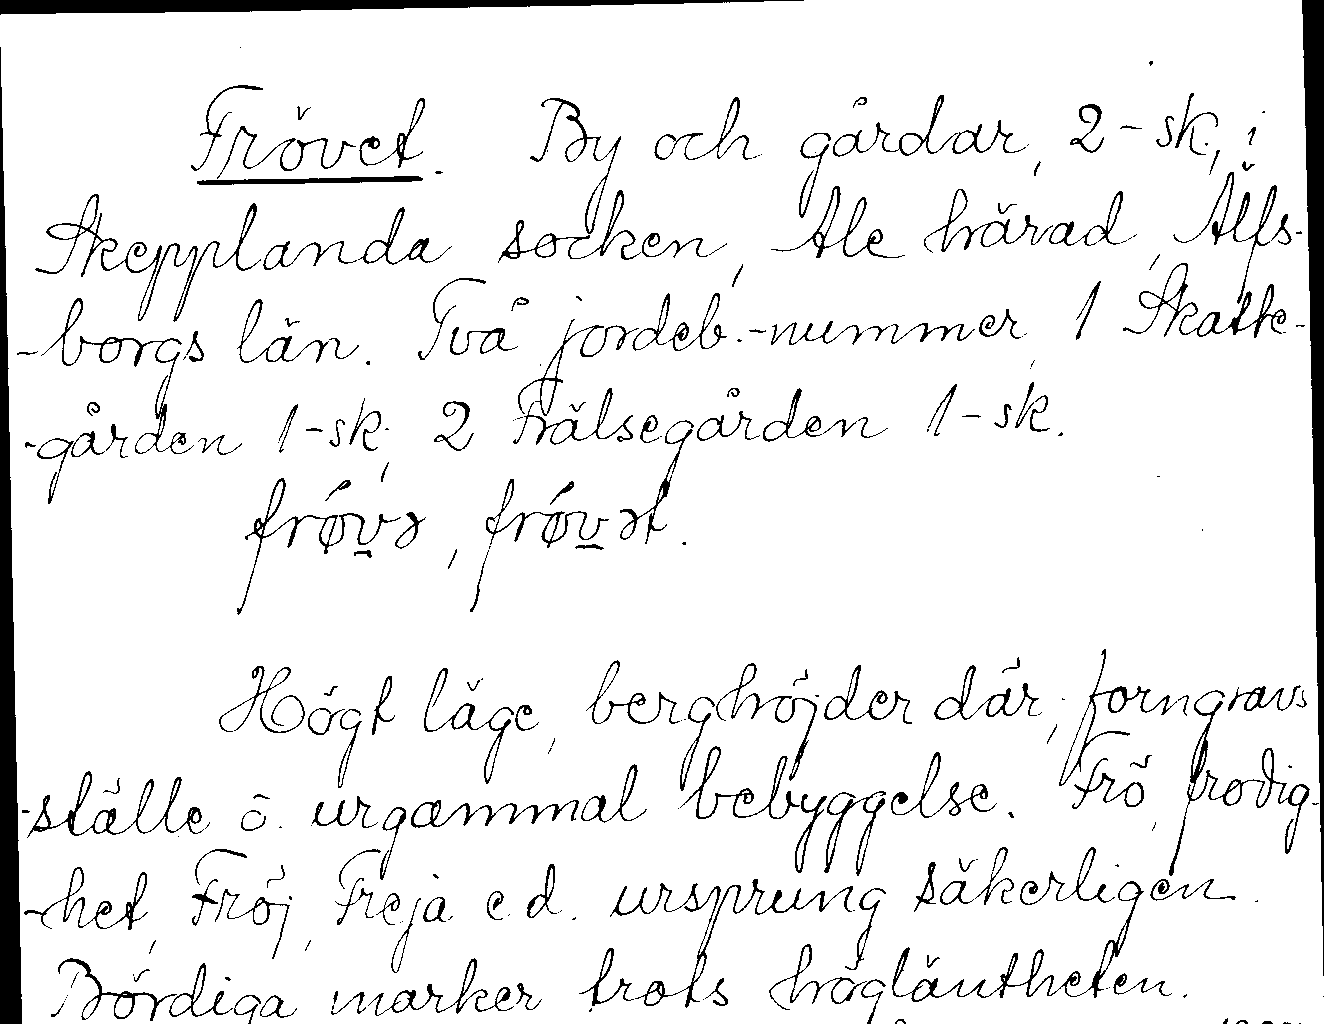 Frövet. By och gårdar, 2-sk., i
Skepplanda socken, Ale härad, Älfs-
-borgs län. Två jordeb.-nummer, 1 Skatte-
-gården 1-sk., 2 Frälsegården 1-sk.
frǿv̲ə, frǿv̲ət.
Högt läge, berghöjder där, forngravs
-ställe o. urgammal bebyggelse. Frö, frodig-
-het, Fröj, Freja e.d. ursprung säkerligen.
Bördiga marker trots högläntheten.